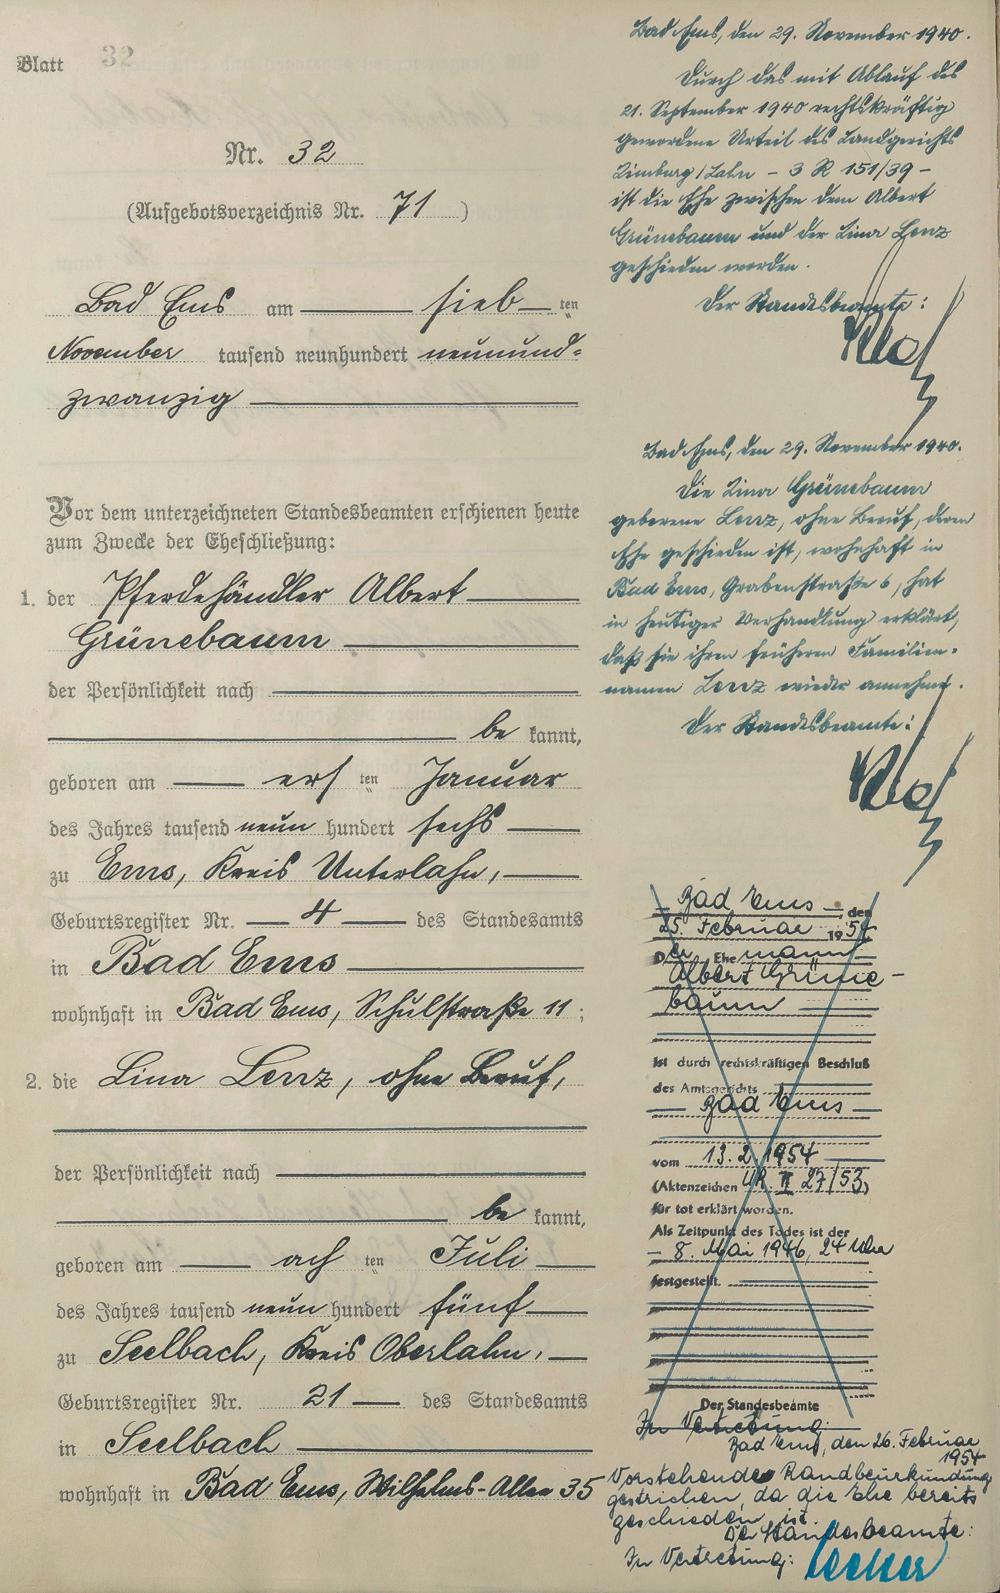 Blatt 32
Nr. 32
(Aufgebotsverzeichnis Nr. 71)
Bad Ems am sieb ten
November tausend neunhundert neunund-
zwanzig
Vor dem unterzeichneten Standesbeamten erschienen heute
zum Zwecke der Eheschließung:
1. der Pferdehändler Albert
Grünebaum
der Persönlichkeit nach
be kannt,
geboren am ers ten Januar
des Jahres tausend neun hundert sechs
zu Ems, Kreis Unterlahn,
Geburtsregister Nr. 4 des Standesamts
in Bad Ems
wohnhaft in Bad Ems, Schulstraße 11;
2. die Lina Lenz, ohne Beruf,
der Persönlichkeit nach
be kannt,
geboren am ach ten Juli
des Jahres tausend neun hundert fünf
zu Seelbach, Kreis Oberlahn,
Geburtsregister Nr. 21 des Standesamts
in Seelbach
wohnhaft in Bad Ems, Wilhelms-Allee 35
Bad Ems, den 29. November 1940.
Durch das mit Ablauf des
21. September 1940 rechtskräftig
gewordene Urteil des Landgerichts
Limburg/Lahn - 3 R 151/39 -
ist die Ehe zwischen dem Albert
Grünebaum und der Lina Lenz
geschieden worden.
Der Standesbeamte:
Bad Ems, den 29. November 1940.
Die Lina Grünebaum
geborene Lenz, ohne Beruf, deren
Ehe geschieden ist, wohnhaft in
Bad Ems, Grabenstraße 6, hat
in heutiger Verhandlung erklärt,
daß sie ihren früheren Familien-
namen Lenz wieder annehme.
Der Standesbeamte:
Bad Ems, den
25. Februar 1954
Der Ehemann
Albert Grüne-
baum
ist durch rechtskräftigen Beschluß
des Amtsgerichts
Bad Ems
vom 13. 2. 1954
(Aktenzeichen UR. II 27/53)
für tot erklärt worden.
Als Zeitpunkt des Todes ist der
8. Mai 1946, 24 Uhr
festgestellt.
Der Standesbeamte
In Vertretung:
Bad Ems, den 26. Februar
1954
Vorstehende Randbeurkundung
gestrichen, da die Ehe bereits
geschieden ist.
Der Standesbeamte:
In Vertretung: